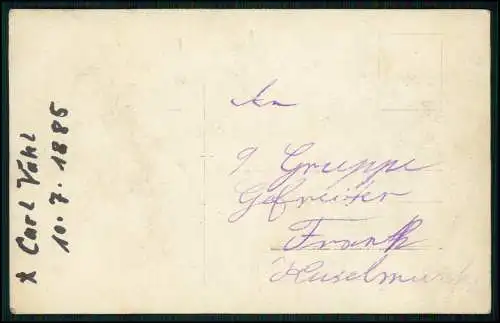 An
9 Gruppe
Gefreiter
Frank
* Carl Vahl
10.7.1885